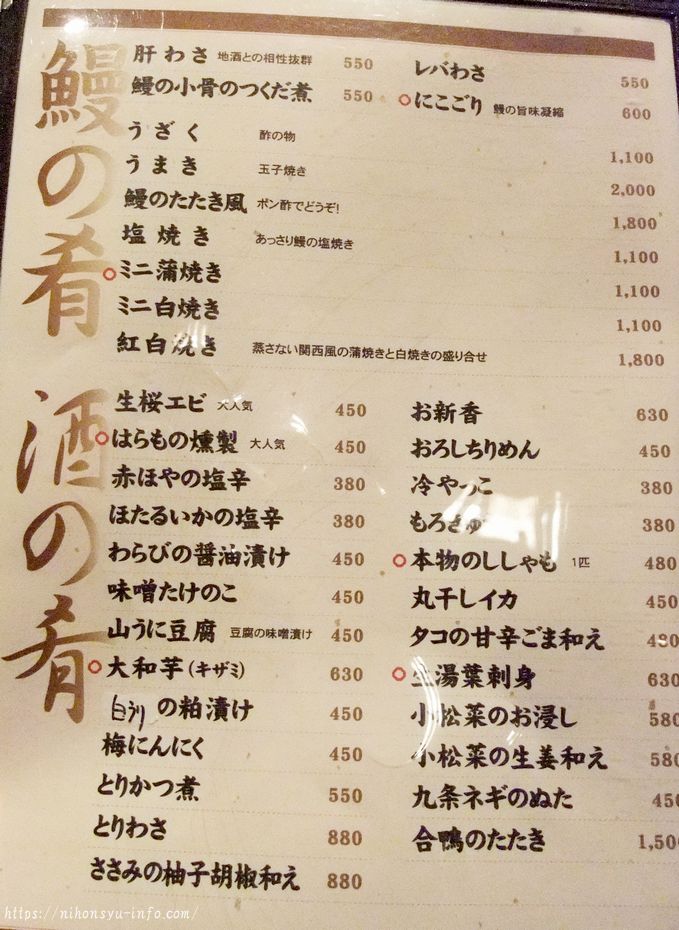 鰻の肴
肝わさ 地酒との相性抜群 550
鰻の小骨のつくだ煮 550
レバわさ 550
○にこごり 鰻の旨味凝縮 600
うざく 酢の物 1,100
うまき 玉子焼き 2,000
鰻のたたき風 ポン酢でどうぞ! 1,800
塩焼き あっさり鰻の塩焼き 1,100
○ミニ蒲焼き 1,100
ミニ白焼き 1,100
紅白焼き 蒸さない関西風の蒲焼きと白焼きの盛り合せ 1,800
酒の肴
生桜エビ 大人気 450
○はらもの燻製 大人気 450
赤ほやの塩辛 380
ほたるいかの塩辛 380
わらびの醤油漬け 450
味噌たけのこ 450
山うに豆腐 豆腐の味噌漬け 450
○大和芋(キザミ) 630
白瓜の粕漬け 450
梅にんにく 450
とりかつ煮 550
とりわさ 880
ささみの柚子胡椒和え 880
お新香 630
おろしちりめん 450
冷やっこ 380
もろきゅう 380
○本物のししゃも 1匹 480
丸干しイカ 450
タコの甘辛ごま和え 480
○生湯葉刺身 630
小松菜のお浸し 580
小松菜の生姜和え 580
九条ネギのぬた 450
合鴨のたたき 1,500
https://nihonsyu-info.com/